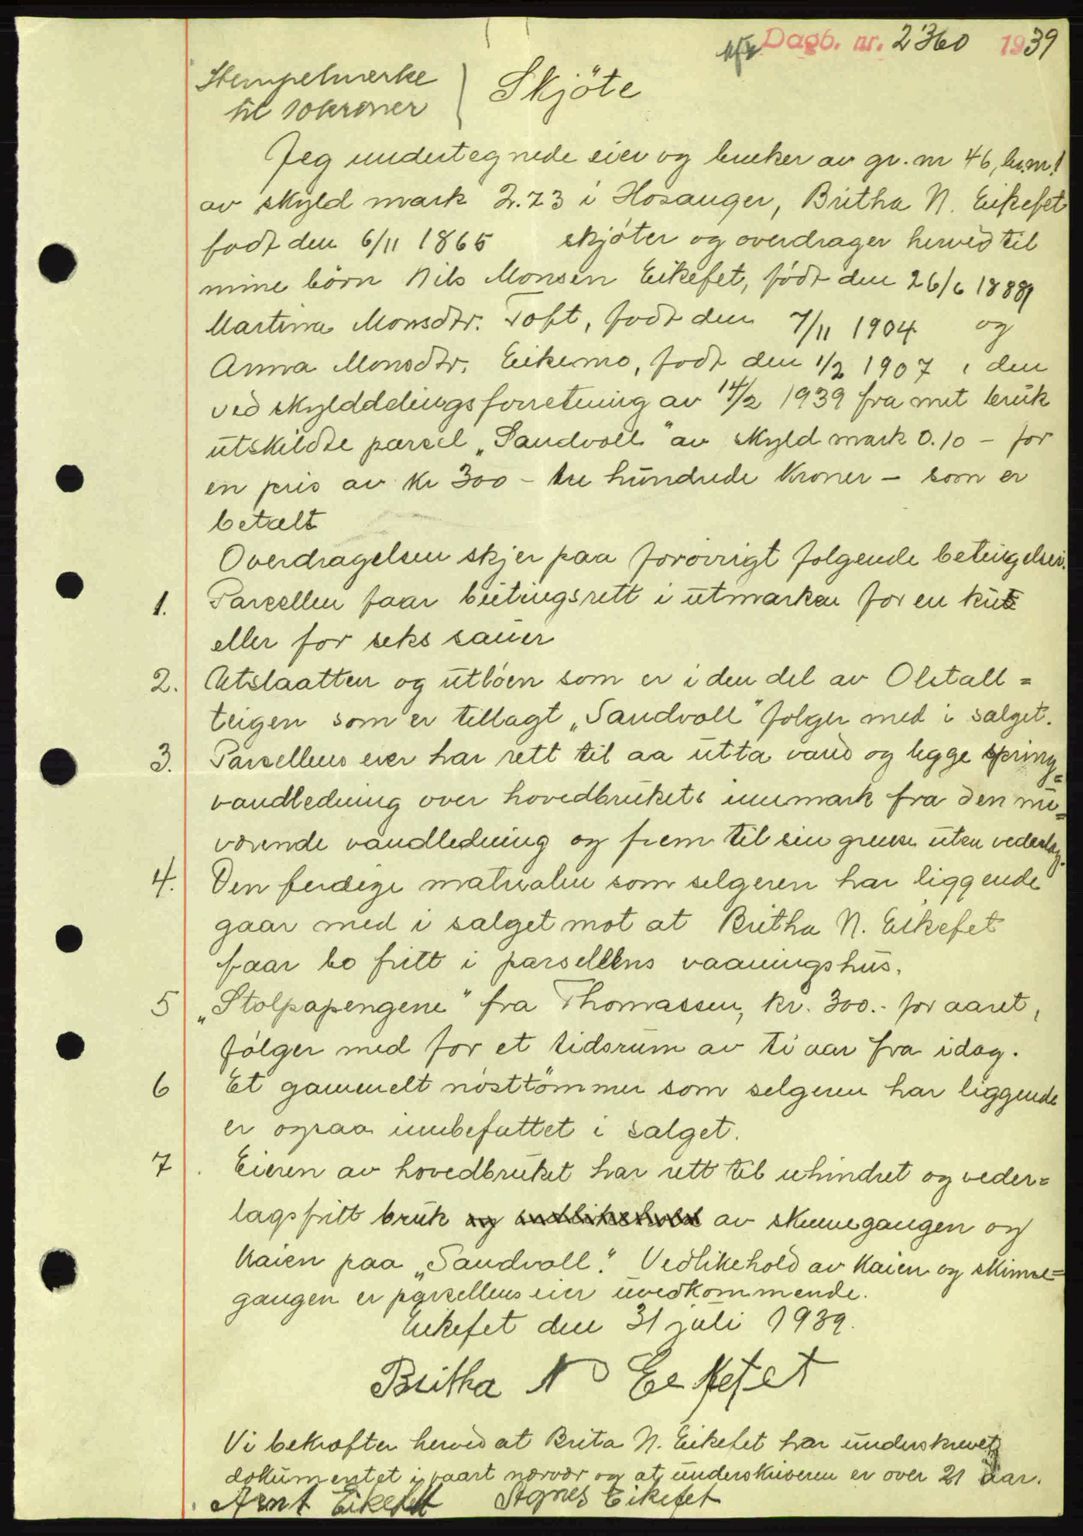 Dagb. nr. 2360 1939
Stempelmerke
til 10 kroner
Skjöte
Jeg undertegnede eier og bruker av gr. nr 46, br.nr 1
av skyld mark 2.73 i Hosanger, Britha N. Eikefet
født den 6/11 1865 skjöter og overdrager herved til
mine börn Nils Monsen Eikefet, född den 26/6 1889
Martina Monsdtr. Toft, född den 7/11 1904 og
Anna Monsdtr. Eikemo, född den 1/2 1907, den
ved skylddelingsforretning av 14/2 1939 fra mit bruk
utskildte parsel „Sandvoll" av skyld mark 0.10 – for
en pris av kr 300 – tre hundrede kroner – som er
betalt
Overdragelsen skjer paa forövrigt følgende betingelser.
1. Parsellen faar beitingsrett i utmarken for en ku
eller for seks sauer
2. Utslaatten og utlöen som er i den del av Olstall=
teigen som er tillagt „Sandvoll" følger med i salget.
3. Parsellens eier har rett til aa utta vand og legge spring=
vandledning over hovedbrukets innmark fra den nu=
værende vandledning og frem til sin grense uten vederlag.
4. Den ferdige materialen som selgeren har liggende
gaar med i salget mot at Britha N. Eikefet
faar bo fritt i parsellens vaaningshus.
5 „Stolpapengene" fra Thomassen, kr. 300.- for aaret,
fölger med for et tidsrum av ti aar fra idag.
6 Et gammelt nösttömmer som selgeren har liggende
er ogsaa innbefattet i salget.
7. Eieren av hovedbruket har rett til uhindret og veder=
lagsfritt bruk av skinnegangen og
kaien paa „Sandvoll". Vedlikehold av kaien og skinne=
gangen er parsellens eier uvedkommende.
Eikefet den 31 juli 1939.
Britha N Eikefet
Vi bekrefter herved at Brita N. Eikefet har underskrevet
dokumentet i vaart nærvær og at underskriveren er over 21 aar.
Arnt Eikefet Agnes Eikefet